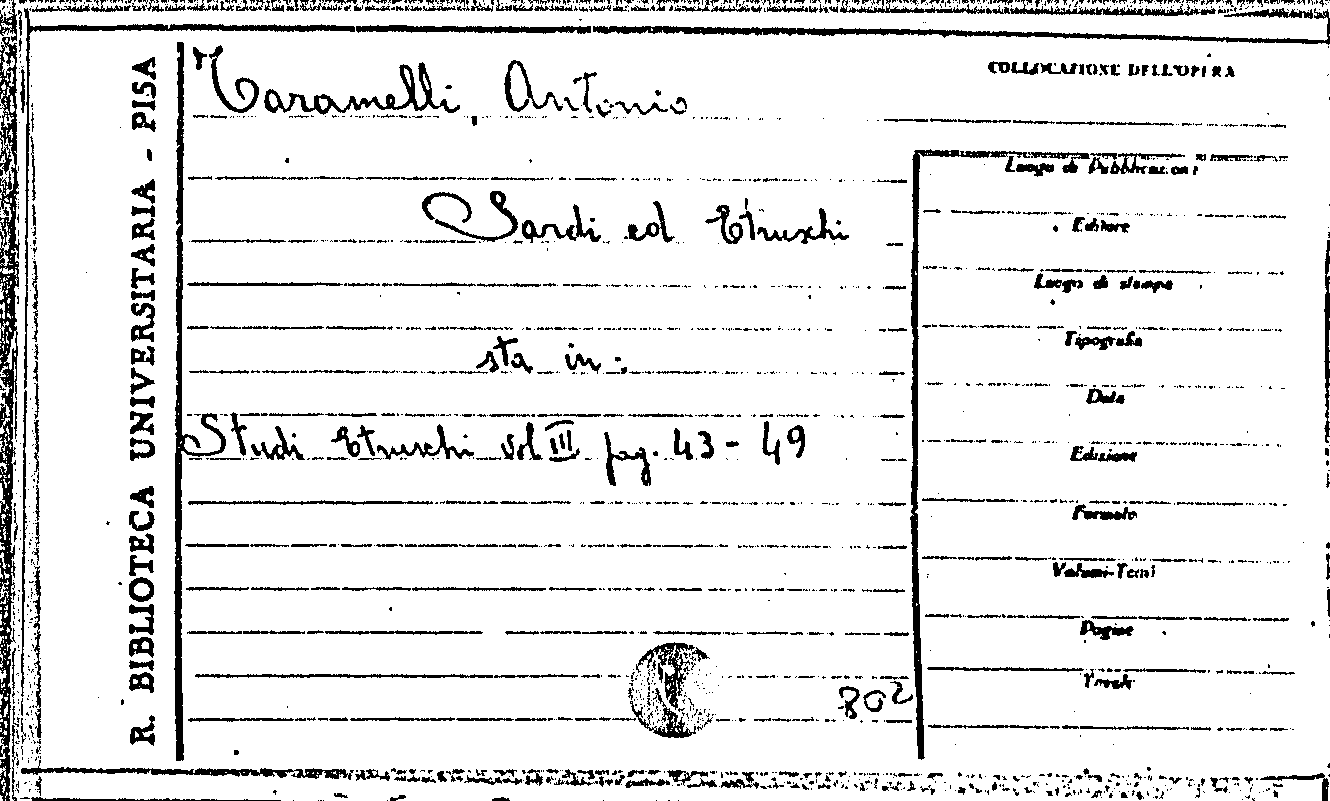 R. BIBLIOTECA UNIVERSITARIA - PISA
Taramelli, Antonio
Sardi ed Etruschi
sta in:
Studi Etruschi vol III pag. 43 - 49
802
COLLOCAZIONE DELL'OPERA
Luogo di Pubblicazioni
Editore
Luogo di stampa
Tipografia
Data
Edizione
Formato
Volumi-Tomi
Pagine
Tavole